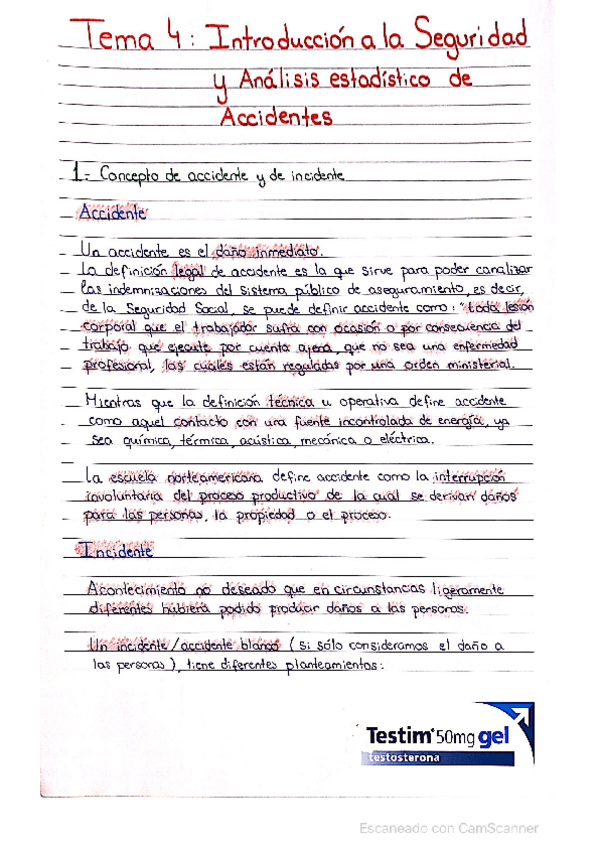 Tema 4: Introducción a la Seguridad
y Análisis estadístico de
Accidentes
1.- Concepto de accidente y de incidente
Accidente
Un accidente es el daño inmediato.
La definición legal de accidente es la que sirve para poder canalizar
las indemnizaciones del sistema público de aseguramiento, es decir,
de la Seguridad Social, se puede definir accidente como: "toda lesión
corporal que el trabajador sufra con ocasión o por consecuencia del
trabajo que ejecute por cuenta ajena, que no sea una enfermedad
profesional, las cuales están reguladas por una orden ministerial.
Mientras que la definición técnica u operativa define accidente
como aquel contacto con una fuente incontrolada de energía, ya
sea química, térmica, acústica, mecánica o eléctrica.
La escuela norteamericana define accidente como la interrupción
involuntaria del proceso productivo de la cual se derivan daños
para las personas, la propiedad o el proceso.
Incidente
Acontecimiento no deseado que en circunstancas ligeramente
diferentes hubiera podido producir daños a las personas.
Un incidente/accidente blanco (si sólo consideramos el daño a
las personas), tiene diferentes planteamientos:
Testim® 50mg gel
testosterona
Escaneado con CamScanner